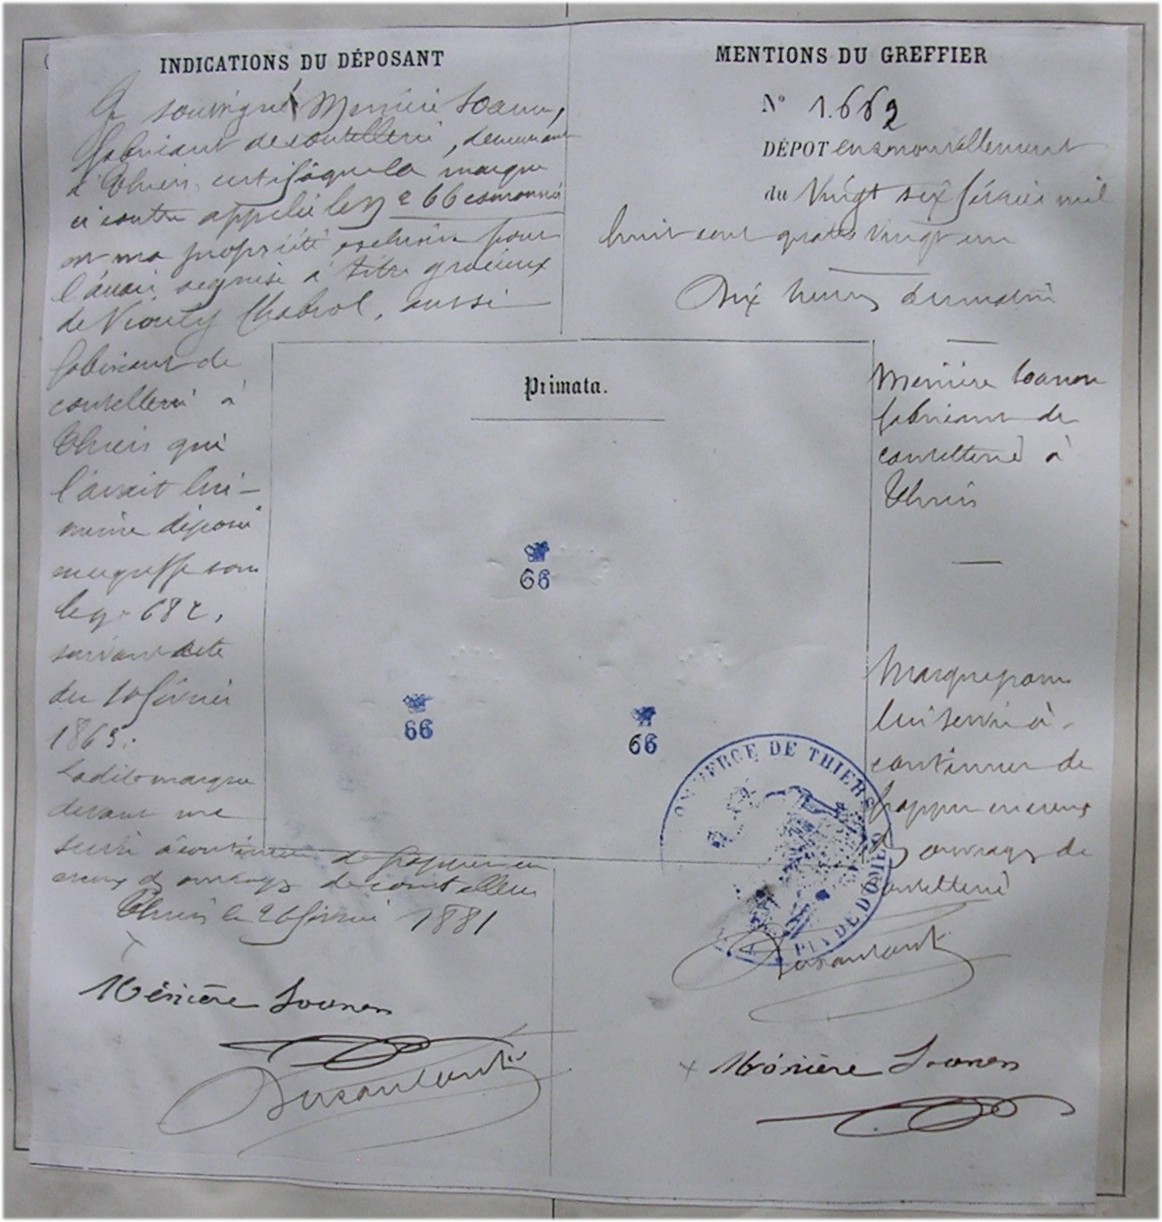 INDICATIONS DU DÉPOSANT
Je soussigné Mérière Joanen,
fabricant de coutellerie, demeurant
à Thiers, certifie que la marque
ci contre appelée le nº 66 couronné
est ma propriété exclusive pour
l'avoir acquise à titre gracieux
de Chabrol, aussi
fabricant de
coutellerie à
Thiers qui
l'avait lui-
même déposé
au greffe sous
le nº 682,
suivant acte
du 10 février
1865.
Ladite marque
devant me
servir à continuer de frapper en
creux des ouvrages de coutellerie
Thiers le 26 février 1881
Mérière Joanen
Dusautant
MENTIONS DU GREFFIER
Nº 1.662
DÉPOT en renouvellement
du Vingt six février mil
huit cent quatre vingt un
Dix heures du matin
Mérière Joanen
fabricant de
coutellerie à
Thiers
Marque pour
lui servir à
continuer de
frapper en creux
des ouvrages de
coutellerie
Dusautant
Mérière Joanen
Primata.
66
66
66
COMMERCE DE THIERS
PUY DE DOME